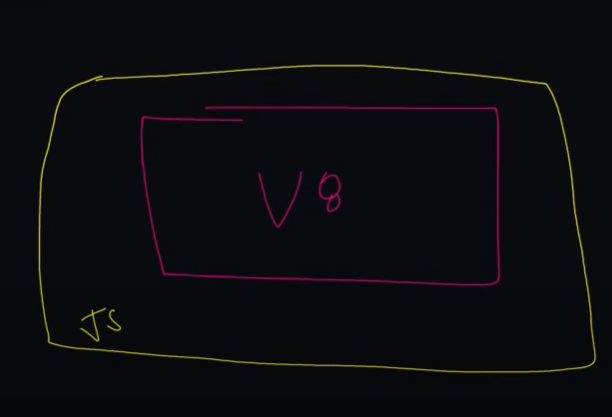 V8
JS